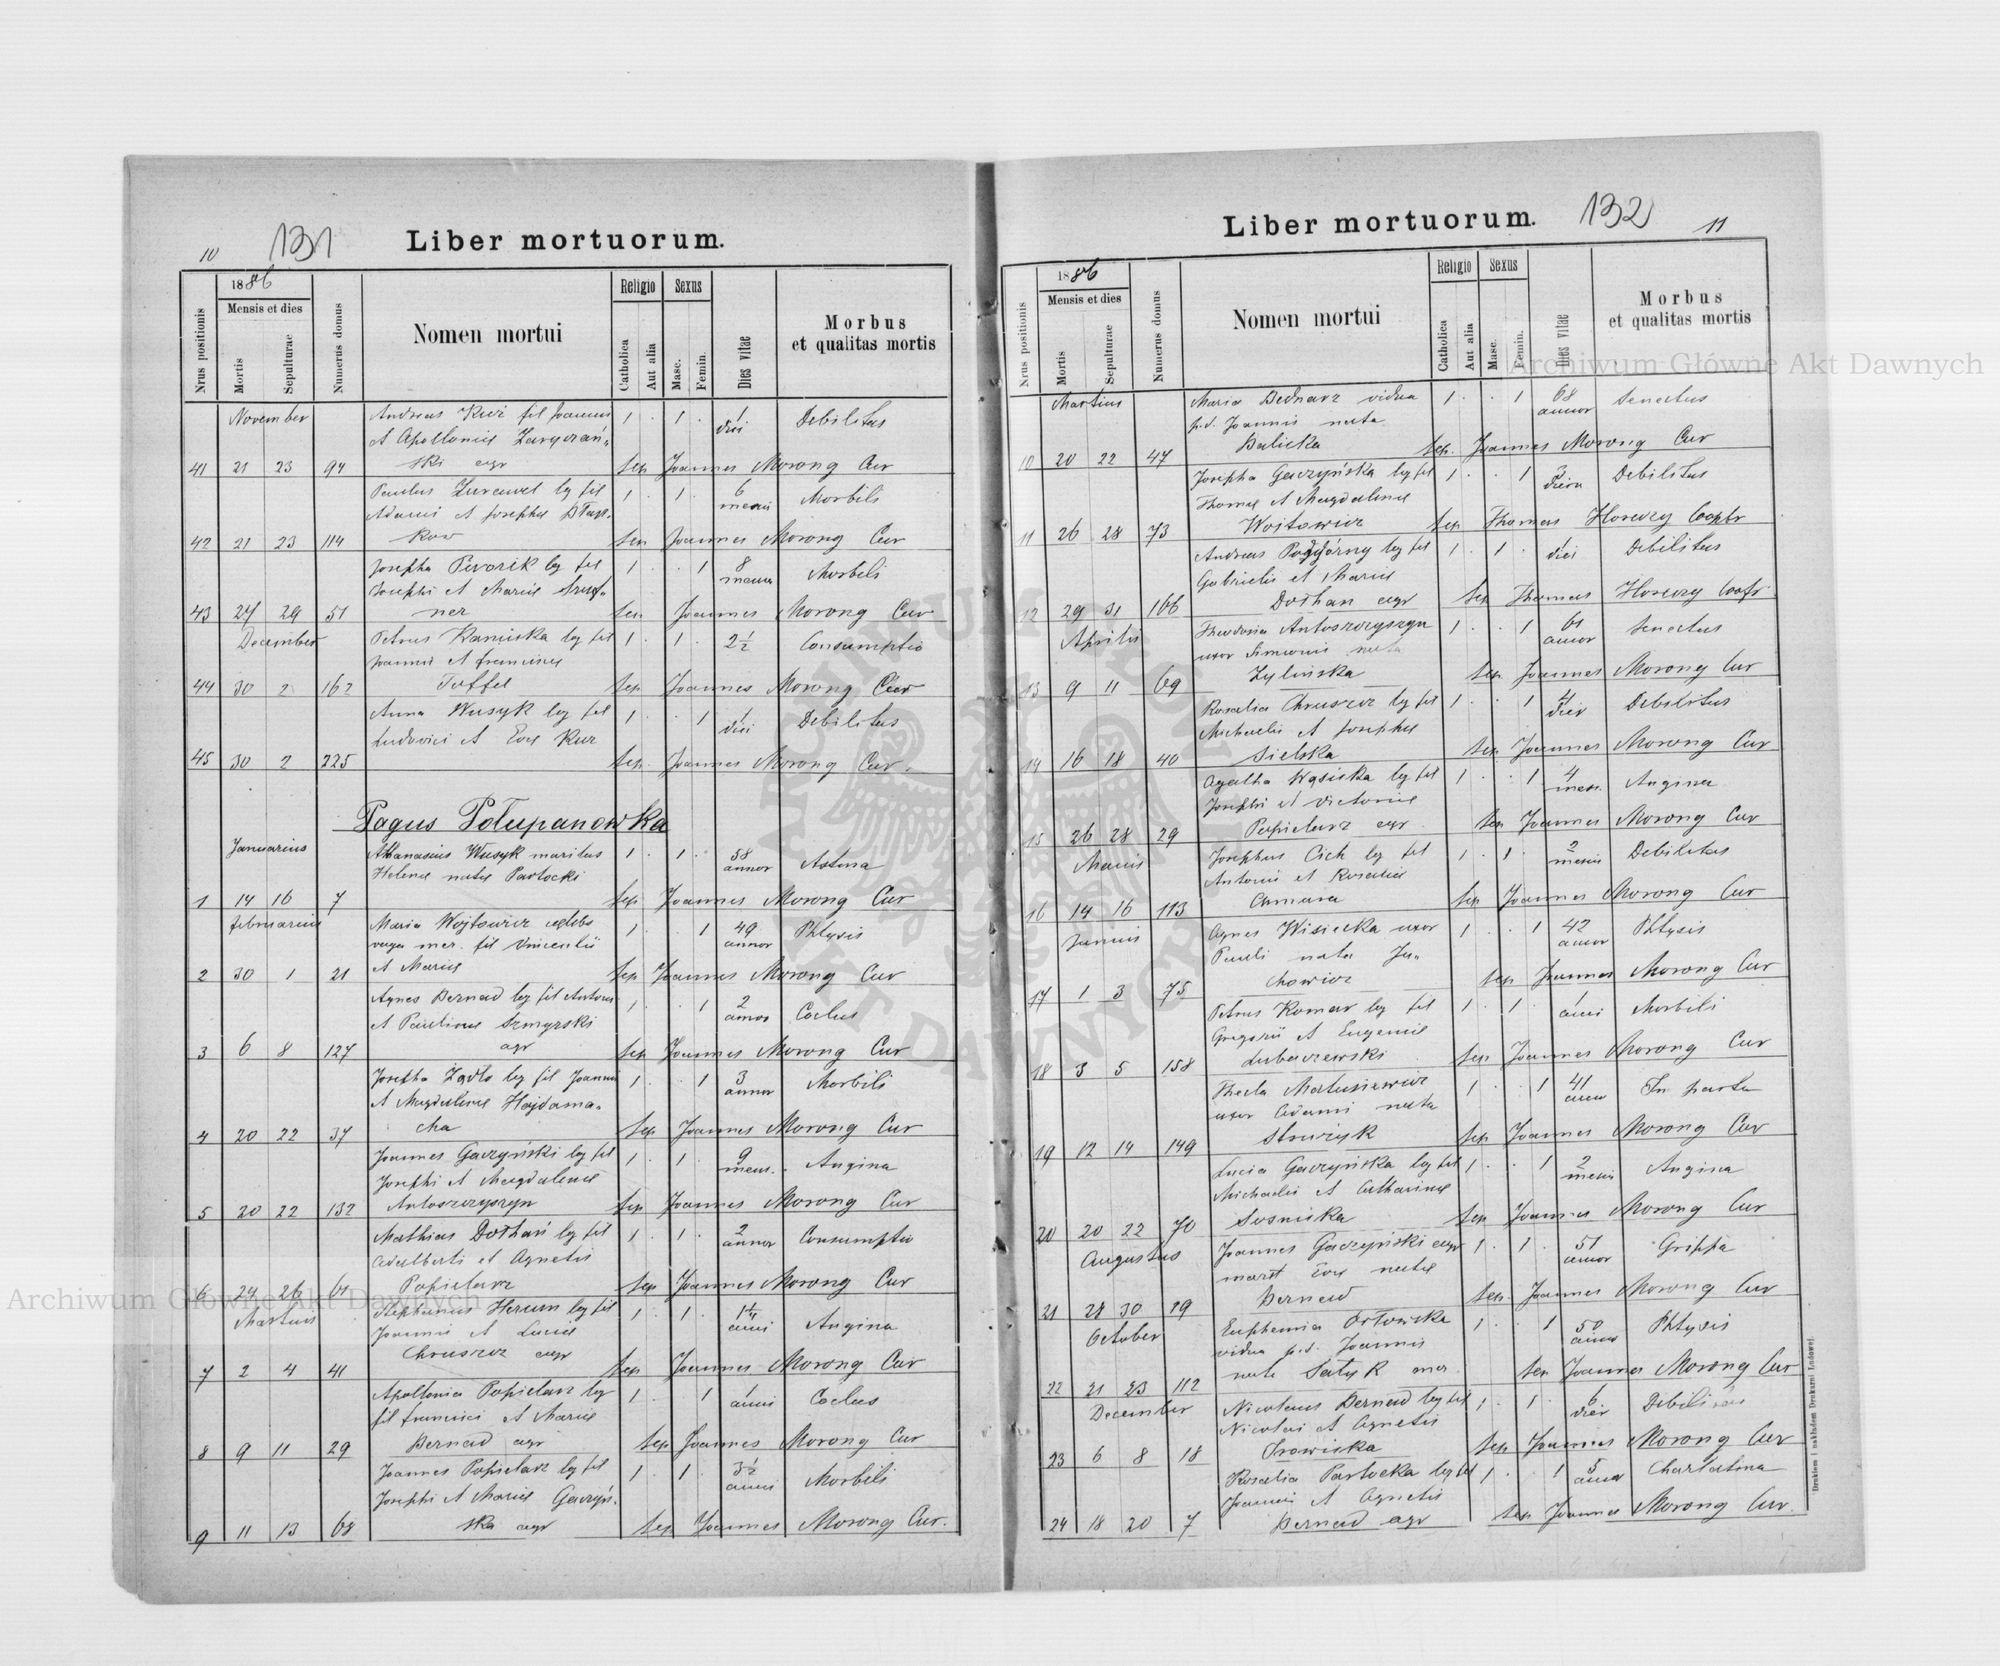 10 131 Liber mortuorum.
Nrus positionis
1886
Mensis et dies
Mortis
Sepulturae
Numerus domus
Nomen mortui
Religio
Catholica
Aut alia
Sexus
Masc.
Femin.
Dies vitae
Morbus
et qualitas mortis
November Andreas Kuź fil Joannis 1 . 1 . 1 diei Debilitas
et Apolloniae
41 21 23 94 ski agr Sep Joannes Morong Cur
Paulus Żurawel leg fil 1 . 1 . 6 mensis Morbili
Adami et Josephae
42 21 23 114 Sep Joannes Morong Cur
Josepha leg fil 1 . . 1 8 mensis Morbili
Josephi et Mariae
43 27 29 51 ner Sep Joannes Morong Cur
December Petrus Kaniuka leg fil 1 . 1 . 2½ Consumptio
Joannis et Franciscae
44 30 2 162 Toffel Sep Joannes Morong Cur
Anna Wusyk leg fil 1 . . 1 1 diei Debilitas
Ludovici et Evae Kuz
45 30 2 225 Sep. Joannes Morong Cur.
Pagus Połupanowka
Januarius Athanasius Wusyk maritus 1 . 1 . 58 annor Astma
Helenae natae Pastocki
1 14 16 7 Sep Joannes Morong Cur
Februarius Maria Wojtowicz 1 . . 1 49 annor Phtysis
mer. fil Vincentii
2 30 1 21 et Mariae Sep Joannes Morong Cur
Agnes Bernad leg fil Antonii 1 . . 1 2 annor Coclus
et Paulinae Szmyrski
3 6 8 127 agr Sep Joannes Morong Cur
Josepha Żądło leg fil Joannis 1 . . 1 3 annor Morbili
et Magdalenae Hajdama-
4 20 22 37 cha Sep Joannes Morong Cur
Joannes Gaczyński leg fil 1 . 1 . 9 mens. Angina
Josephi et Magdalenae
5 20 22 132 Antoszczyszyn Sep Joannes Morong Cur
Mathias Dołhań leg fil 1 . 1 . 2 annor Consumptio
Adalberti et Agnetis
6 24 26 61 Popielarz Sep Joannes Morong Cur
Martius Stephanus leg fil 1 . 1 . 1¼ anni Angina
Joannis et Luciae
7 2 4 41 Chruszcz agr Sep Joannes Morong Cur
Apollonia Popielarz leg 1 . . 1 1 anni Coclus
fil Francisci et Mariae
8 9 11 29 Bernad agr Sep Joannes Morong Cur
Joannes Popielarz leg fil 1 . 1 . 3½ anni Morbili
Josephi et Mariae Gaczyń-
9 11 13 68 ska agr Sep Joannes Morong Cur.
Liber mortuorum. 132 11
Nrus positionis
1886
Mensis et dies
Mortis
Sepulturae
Numerus domus
Nomen mortui
Religio
Catholica
Aut alia
Sexus
Masc.
Femin.
Dies vitae
Morbus
et qualitas mortis
Martius Maria Bednarz vidua 1 . . 1 68 annor Senectus
p.d. Joannis nata
10 20 22 47 Balicka Sep. Joannes Morong Cur
Josepha Gaczyńska leg fil 1 . . 1 Debilitas
Thomae et Magdalenae
11 26 28 73 Wojtowicz Sep Thomas Horeczy Cooptr
Andreas Podgórny leg fil 1 . 1 . 1 diei Debilitas
Gabrielis et Mariae
12 29 31 166 Dołhan agr Sep Thomas Horeczy Cooptr
Aprilis Theodosia Antoszczyszyn 1 . . 1 61 annor Senectus
uxor Simeonis nata
13 9 11 69 Zylinska Sep Joannes Morong Cur
Rosalia Chruszcz leg fil 1 . . 1 4 dier Debilitas
Michaelis et Josephae
14 16 18 40 Sielska Sep Joannes Morong Cur
Agatha Wąsicka leg fil 1 . . 1 4 mens. Angina
Josephi et Victoriae
15 26 28 29 Popielarz agr Sep Joannes Morong Cur
Maius Josephus Cich leg fil 1 . 1 . 2 mensis Debilitas
Antonii et Rosaliae
16 14 16 113 Camara Sep Joannes Morong Cur
Junius Agnes Wisicka uxor 1 . . 1 42 annor Phtysis
Pauli nata Ju-
17 1 3 75 chowicz Sep Joannes Morong Cur
Petrus Komar leg fil 1 . 1 . 1 anni Morbili
Gregorii et Eugeniae
18 3 5 158 Lubaczewski Sep Joannes Morong Cur
Thecla Matusiewicz 1 . . 1 41 annor In partu
uxor Adami nata
19 12 14 149 Sep Joannes Morong Cur
Lucia Gaczyńska leg fil 1 . . 1 2 mensis Angina
Michaelis et Catharinae
20 20 22 70 Sosnicka Sep Joannes Morong Cur
Augustus Joannes Gaczyński agr 1 . 1 . 51 annor Grippa
marit Evae natae
21 28 30 19 Bernad Sep. Joannes Morong Cur
October Euphemia Orłowska 1 . . 1 50 annor Phtysis
vidua p.d. Joannis
22 21 23 112 nata Satyk mer. Sep Joannes Morong Cur
December Nicolaus Bernad leg fil 1 . 1 . 6 dier Debilitas
Nicolai et Agnetis
23 6 8 18 Sep Joannes Morong Cur
Rosalia Pastocka leg fil 1 . . 1 5 annor
Joannis et Agnetis
24 18 20 7 Bernad agr Sep Joannes Morong Cur.
Drukiem i nakładem Drukarni Ludowej.
Archiwum Główne Akt Dawnych
Archiwum Główne Akt Dawnych
ARCHIWUM GŁÓWNE AKT DAWNYCH